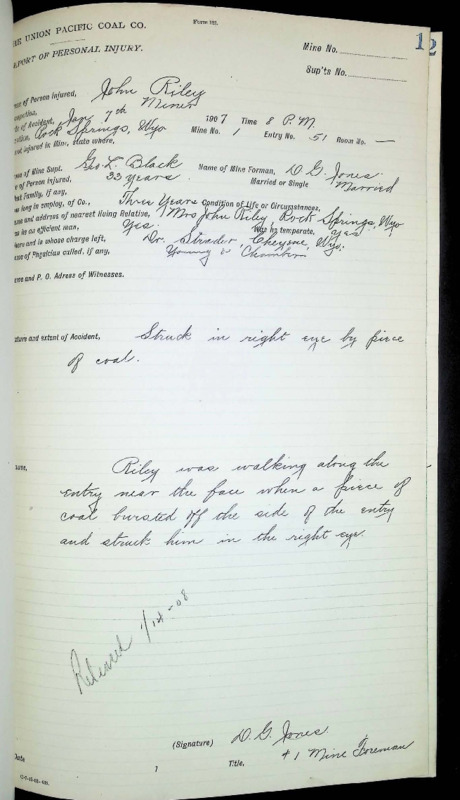 THE UNION PACIFIC COAL CO.
Form 122.
12
REPORT OF PERSONAL INJURY.
Mine No.
Sup'ts No.
me of Person injured, John Riley
ccupation, Miner
te of Accident, Jan 7th 1907 Time 8 P.M.
cation, Rock Springs, Wyo Mine No. 1 Entry No. 51 Room No. —
not injured in Mine, state where,
me of Mine Supt. Geo. L. Black Name of Mine Forman, D G Jones.
e of Person injured, 33 years. Married or Single Married
hat Family, if any,
ow long in employ, of Co., Three Years Condition of Life or Circumstances,
ame and address of nearest living Relative, Mrs John Riley, Rock Springs, Wyo
as he an efficient man, Yes. Was he temperate, Yes
here and in whose charge left, Dr. Strader, Cheyene, Wyo.
ame of Physician called, if any, Young & Chambers
ame and P. O. Adress of Witnesses.
ature and extent of Accident, Struck in right eye by piece
of coal.
ause, Riley was walking along the
entry near the face when a piece of
coal bursted off the side of the entry
and struck him in the right eye.
Released 1/14-08
(Signature) D. G. Jones
Date 1 Title, #1 Mine Foreman